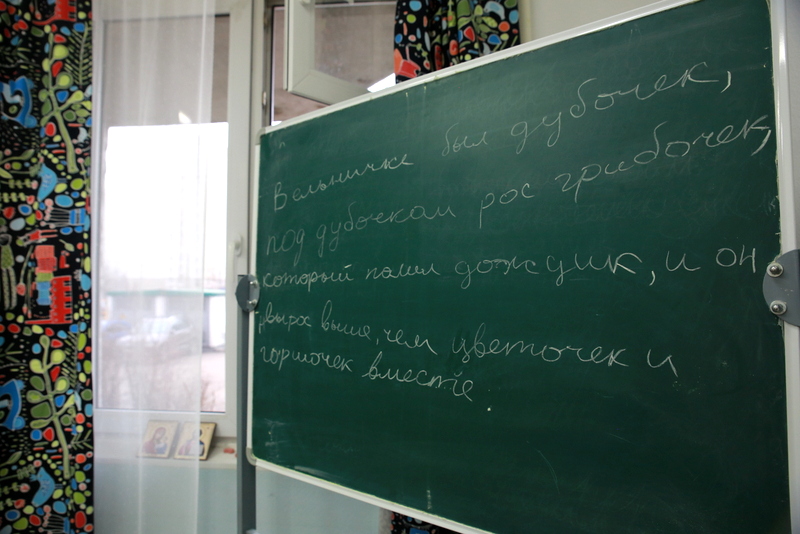 В ельничке был дубочек,
под дубочкам рос грибочек,
который полил дождик, и он
вырос выше, чем цветочек и
горшочек вместе